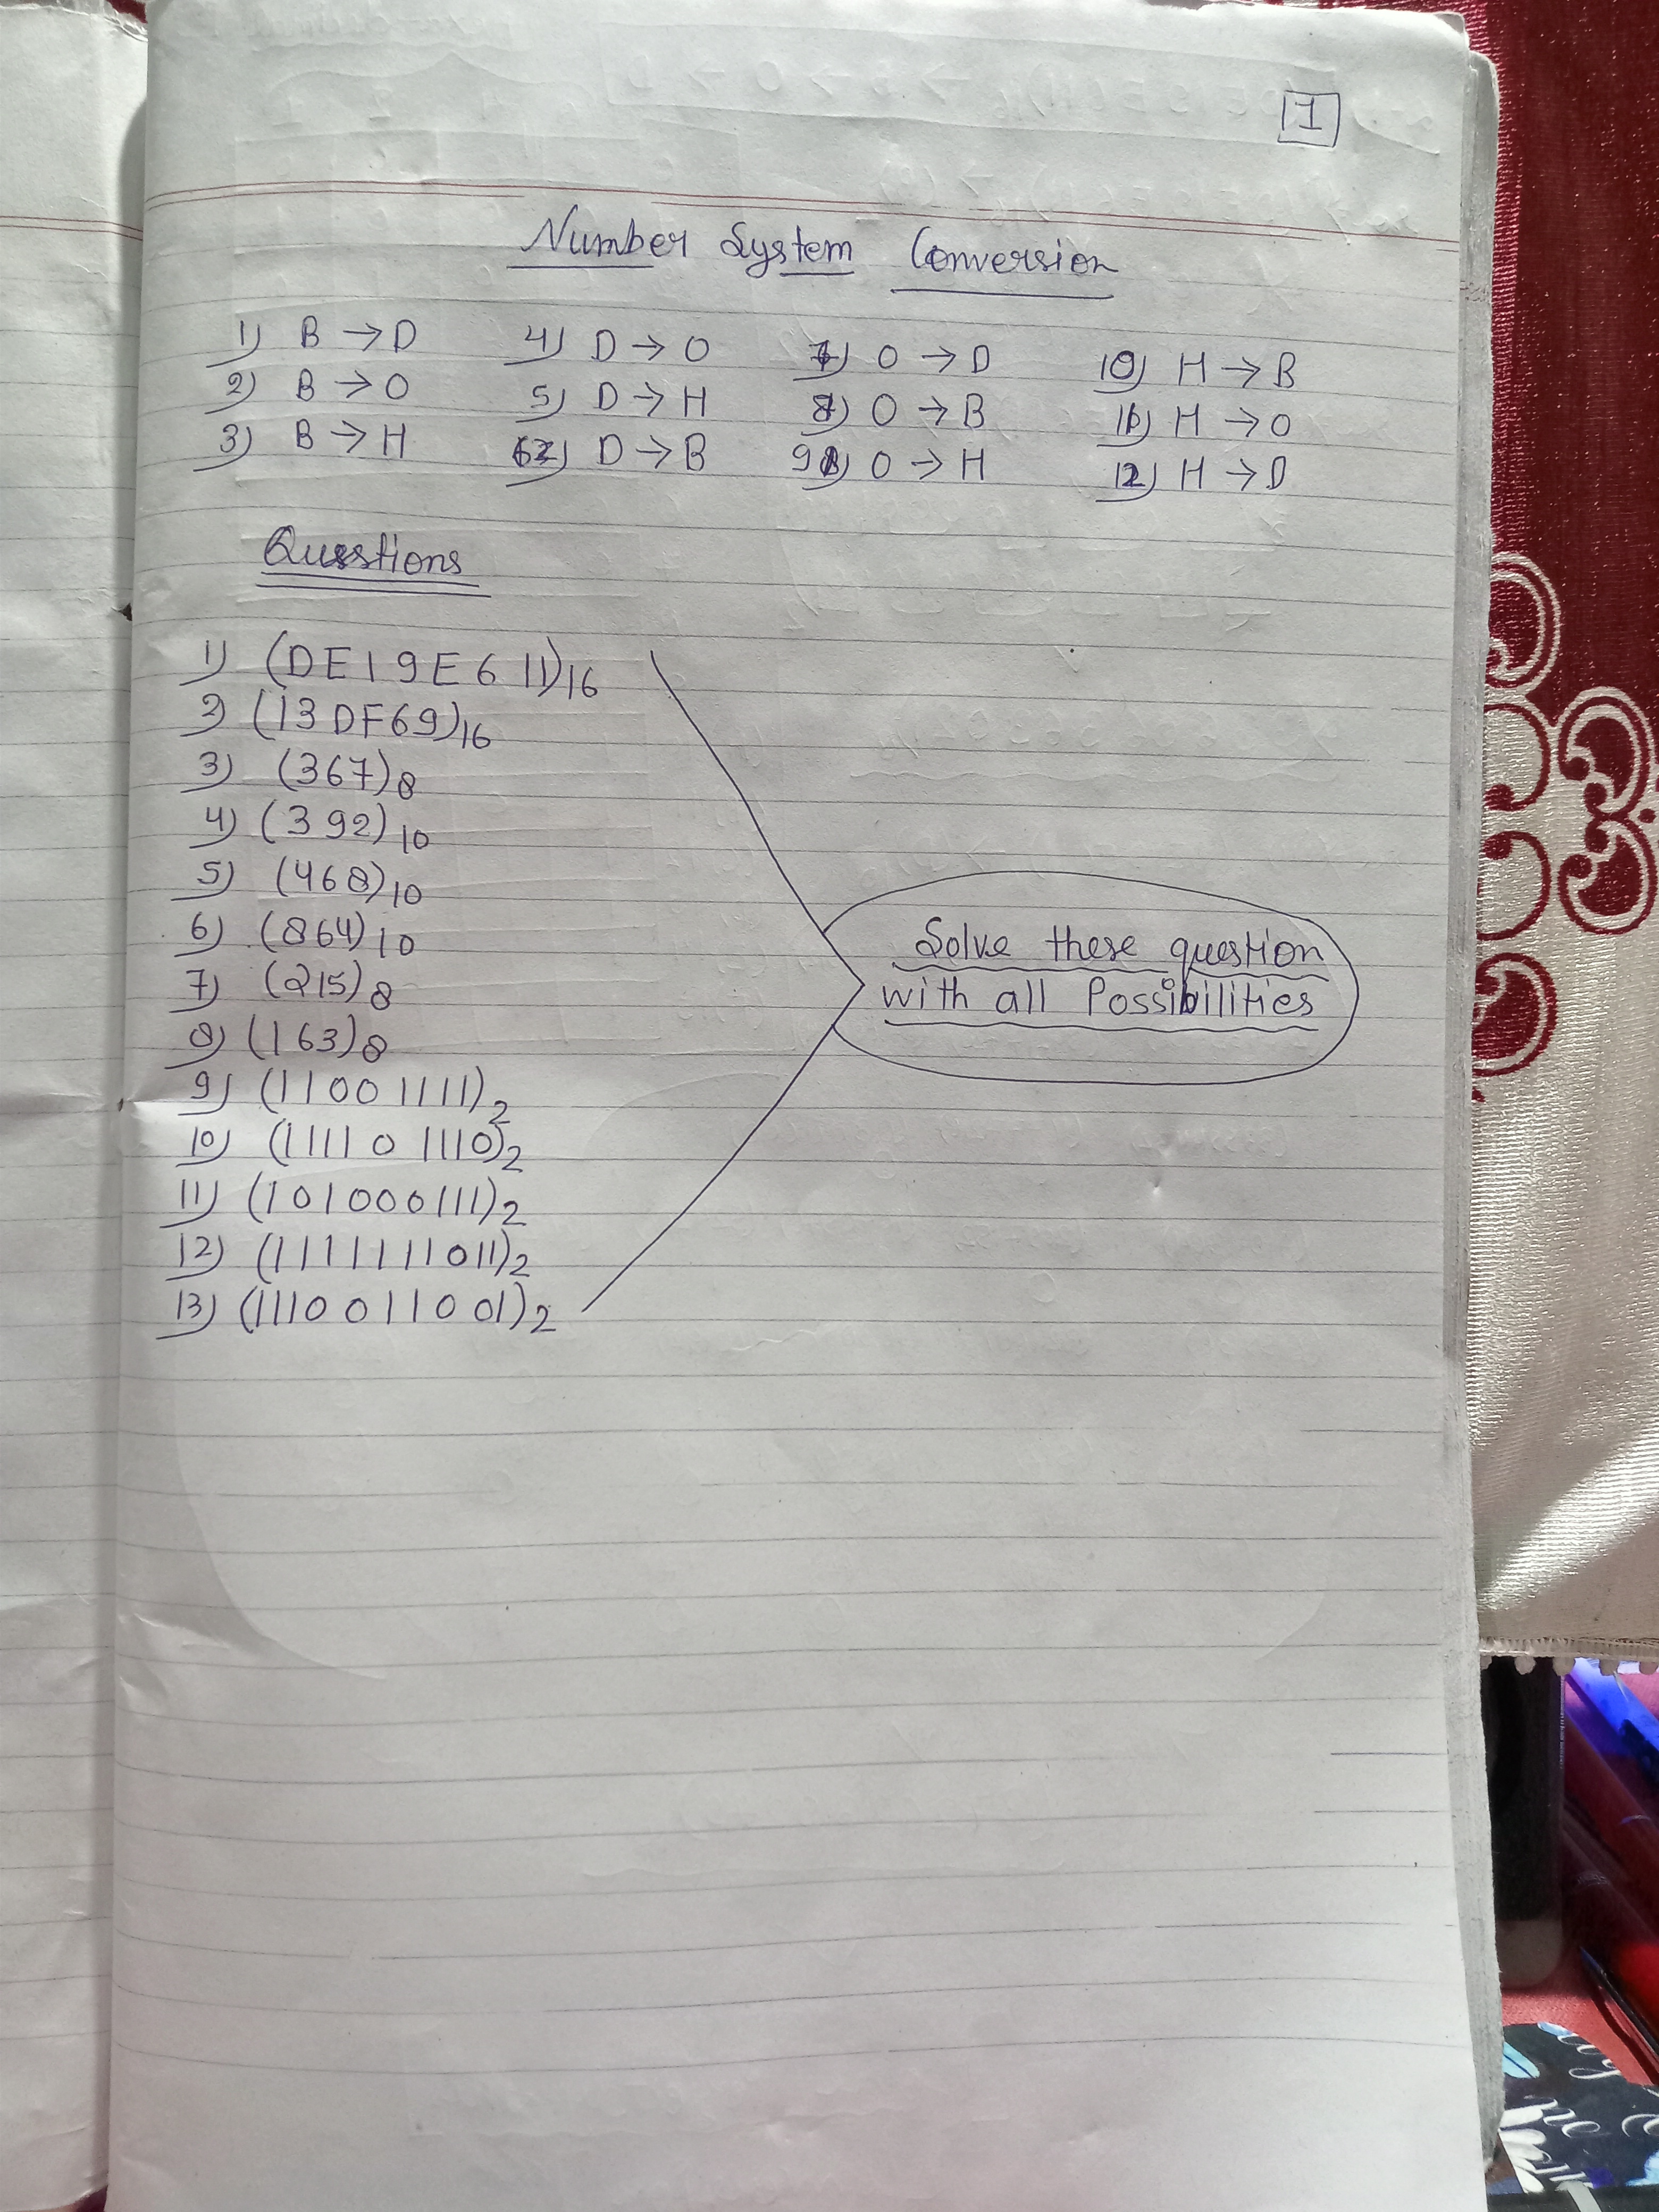 1
Number System Conversion
1) B → D 4) D → O 7) O → D 10) H → B
2) B → O 5) D → H 8) O → B 11) H → O
3) B → H 6) D → B 9) O → H 12) H → D
Questions
1) (DE19E611)16
2) (13DF69)16
3) (367)8
4) (392)10
5) (468)10
6) (864)10
7) (215)8
8) (163)8
9) (11001111)2
10) (111101110)2
11) (101000111)2
12) (1111111011)2
13) (1110011001)2
Solve these question
with all Possibilities